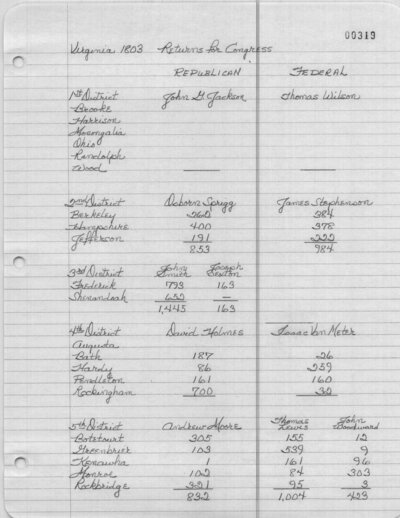 00313
Virginia 1803 Returns for Congress
REPUBLICAN FEDERAL
1st District John G. Jackson Thomas Wilson
Brooke
Harrison
Monongalia
Ohio
Randolph
Wood
2nd District Osborn Sprigg James Stephenson
Berkeley 262 384
Hampshire 400 378
Jefferson 191 222
853 984
3rd District John Smith Joseph Sexton
Frederick 793 163
Shenandoah 652 —
1,445 163
4th District David Holmes Isaac Van Meter
Augusta
Bath 187 26
Hardy 86 259
Pendleton 161 160
Rockingham 700 32
5th District Andrew Moore Thomas Lewis John Woodward
Botetourt 305 155 12
Greenbrier 103 539 9
Kanawha 1 161 96
Monroe 102 54 303
Rockbridge 321 95 3
832 1,004 423